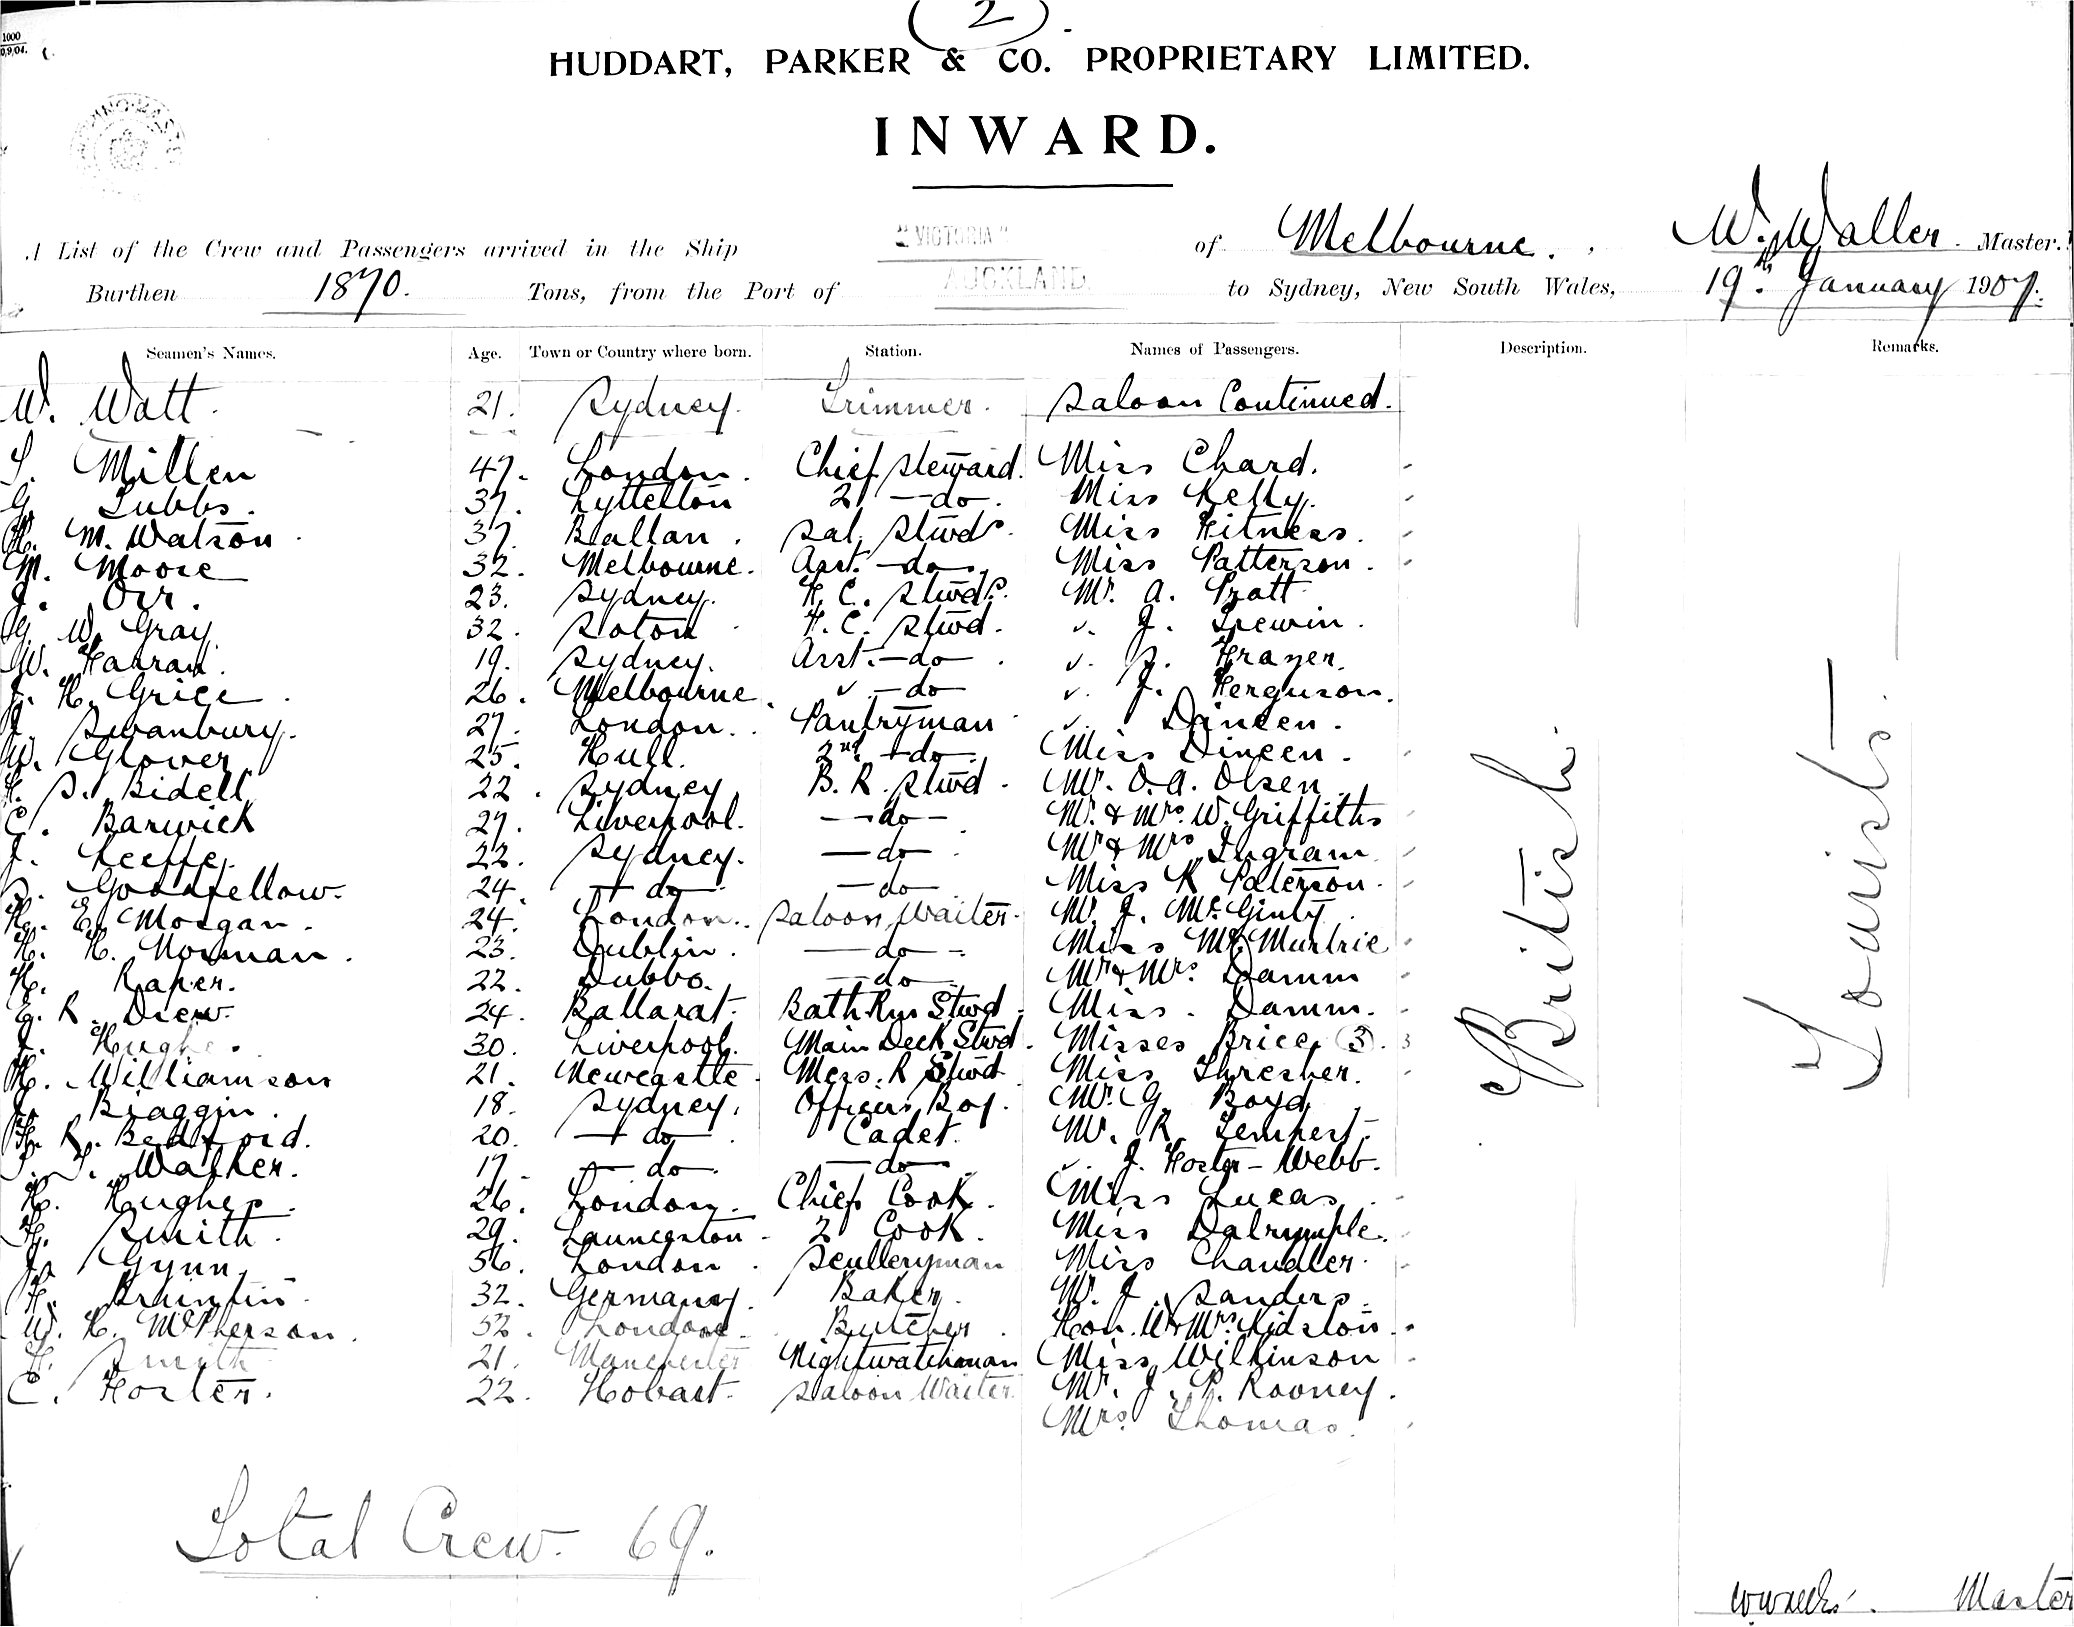 (2).
1000
HUDDART, PARKER & CO. PROPRIETARY LIMITED.
INWARD.
A List of the Crew and Passengers arrived in the Ship "VICTORIA" of Melbourne. W. Waller. Master.
Burthen 1870. Tons, from the Port of AUCKLAND. to Sydney, New South Wales, 19th January 1907.
Seamen's Names. Age. Town or Country where born. Station. Names of Passengers. Description. Remarks.
W. Watt. 21. Sydney. Trimmer. Saloon Continued.
Millen 47. London. Chief Steward. Miss Chard.
G. Tubbs. 37. Lyttelton 2 - do. Miss Kelly.
H. M. Watson 37. Ballan. Sal. Stwds. Miss Fitness.
M. Moore 32. Melbourne. Asst. - do Miss Patterson.
J. Orr. 23. Sydney. F. C. Stwds. Mr. A. Pratt
G. W. Gray 32. Soton F. C. Stwd. " J. Trewin.
W. Farran. 19. Sydney. Asst. - do " Frazer.
J. H. Grice 26. Melbourne " - do " J. Ferguson.
J. Swanbury. 27. London. Pantryman " Dineen.
W. Glover 25. Hull. 2nd - do. Miss Dineen.
S. Bidell 22. Sydney B. R. Stwd. Mr. O. A. Olsen
C. Barwick 27. Liverpool. - do - Mr. & Mrs. W. Griffiths
J. Keeffe. 22. Sydney. - do Mr & Mrs Ingram
S. Goodfellow. 24. - do - do Miss K Paterson.
H. E. Morgan. 24. London. Saloon Waiter. Mr. J. McGinty
H. H. Norman. 23. Dublin. - do - Miss McMurtrie
H. Raper. 22. Dubbo. - do Mr & Mrs. Damm
E. R. Drew. 24. Ballarat. Bath Rm Stwd. Miss. Damm.
J. Hughes. 30. Liverpool. Main Deck Stwd. Misses Brice (3). 3
H. Williamson 21. Newcastle Mess. R Stwd Miss Thresher.
J. Braggin. 18. Sydney. Officers Boy. Mr. G. Boyd
H. R. Bedford. 20. - do Cadet. Mr. R. Tempest.
Walker. 17. - do. - do " J. Foster-Webb.
H. Hughes. 26. London. Chief Cook. Miss Lucas.
H. Smith. 29. Launceston 2 Cook. Miss Dalrymple.
J. Gynn 56. London. Sculleryman Miss Chandler.
32. Germany. Baker. Mr. J. Sanders.
W. H. McPherson. 52. London. Butcher. Hon. Mr & Mrs. Kidston.
Smith 21. Manchester Nightwatchman Miss Wilkinson
C. Foster. 22. Hobart. Saloon Waiter. Mr. J. P. Rooney.
Mrs. Thomas.
British.
Tourists.
Total Crew. 69.
Master